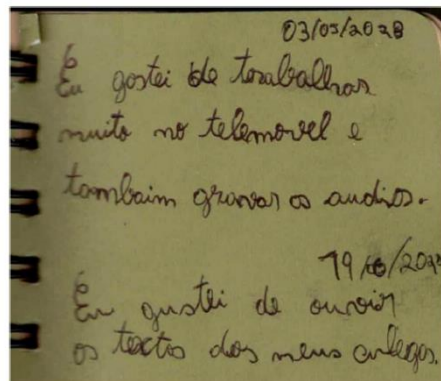 03/05/2023
Eu gostei de torabalhar
muito no telemovel e
tambaim gravar os audios.
19/06/2023
Eu gustei de ouvoir
os textos dos meus culegas.